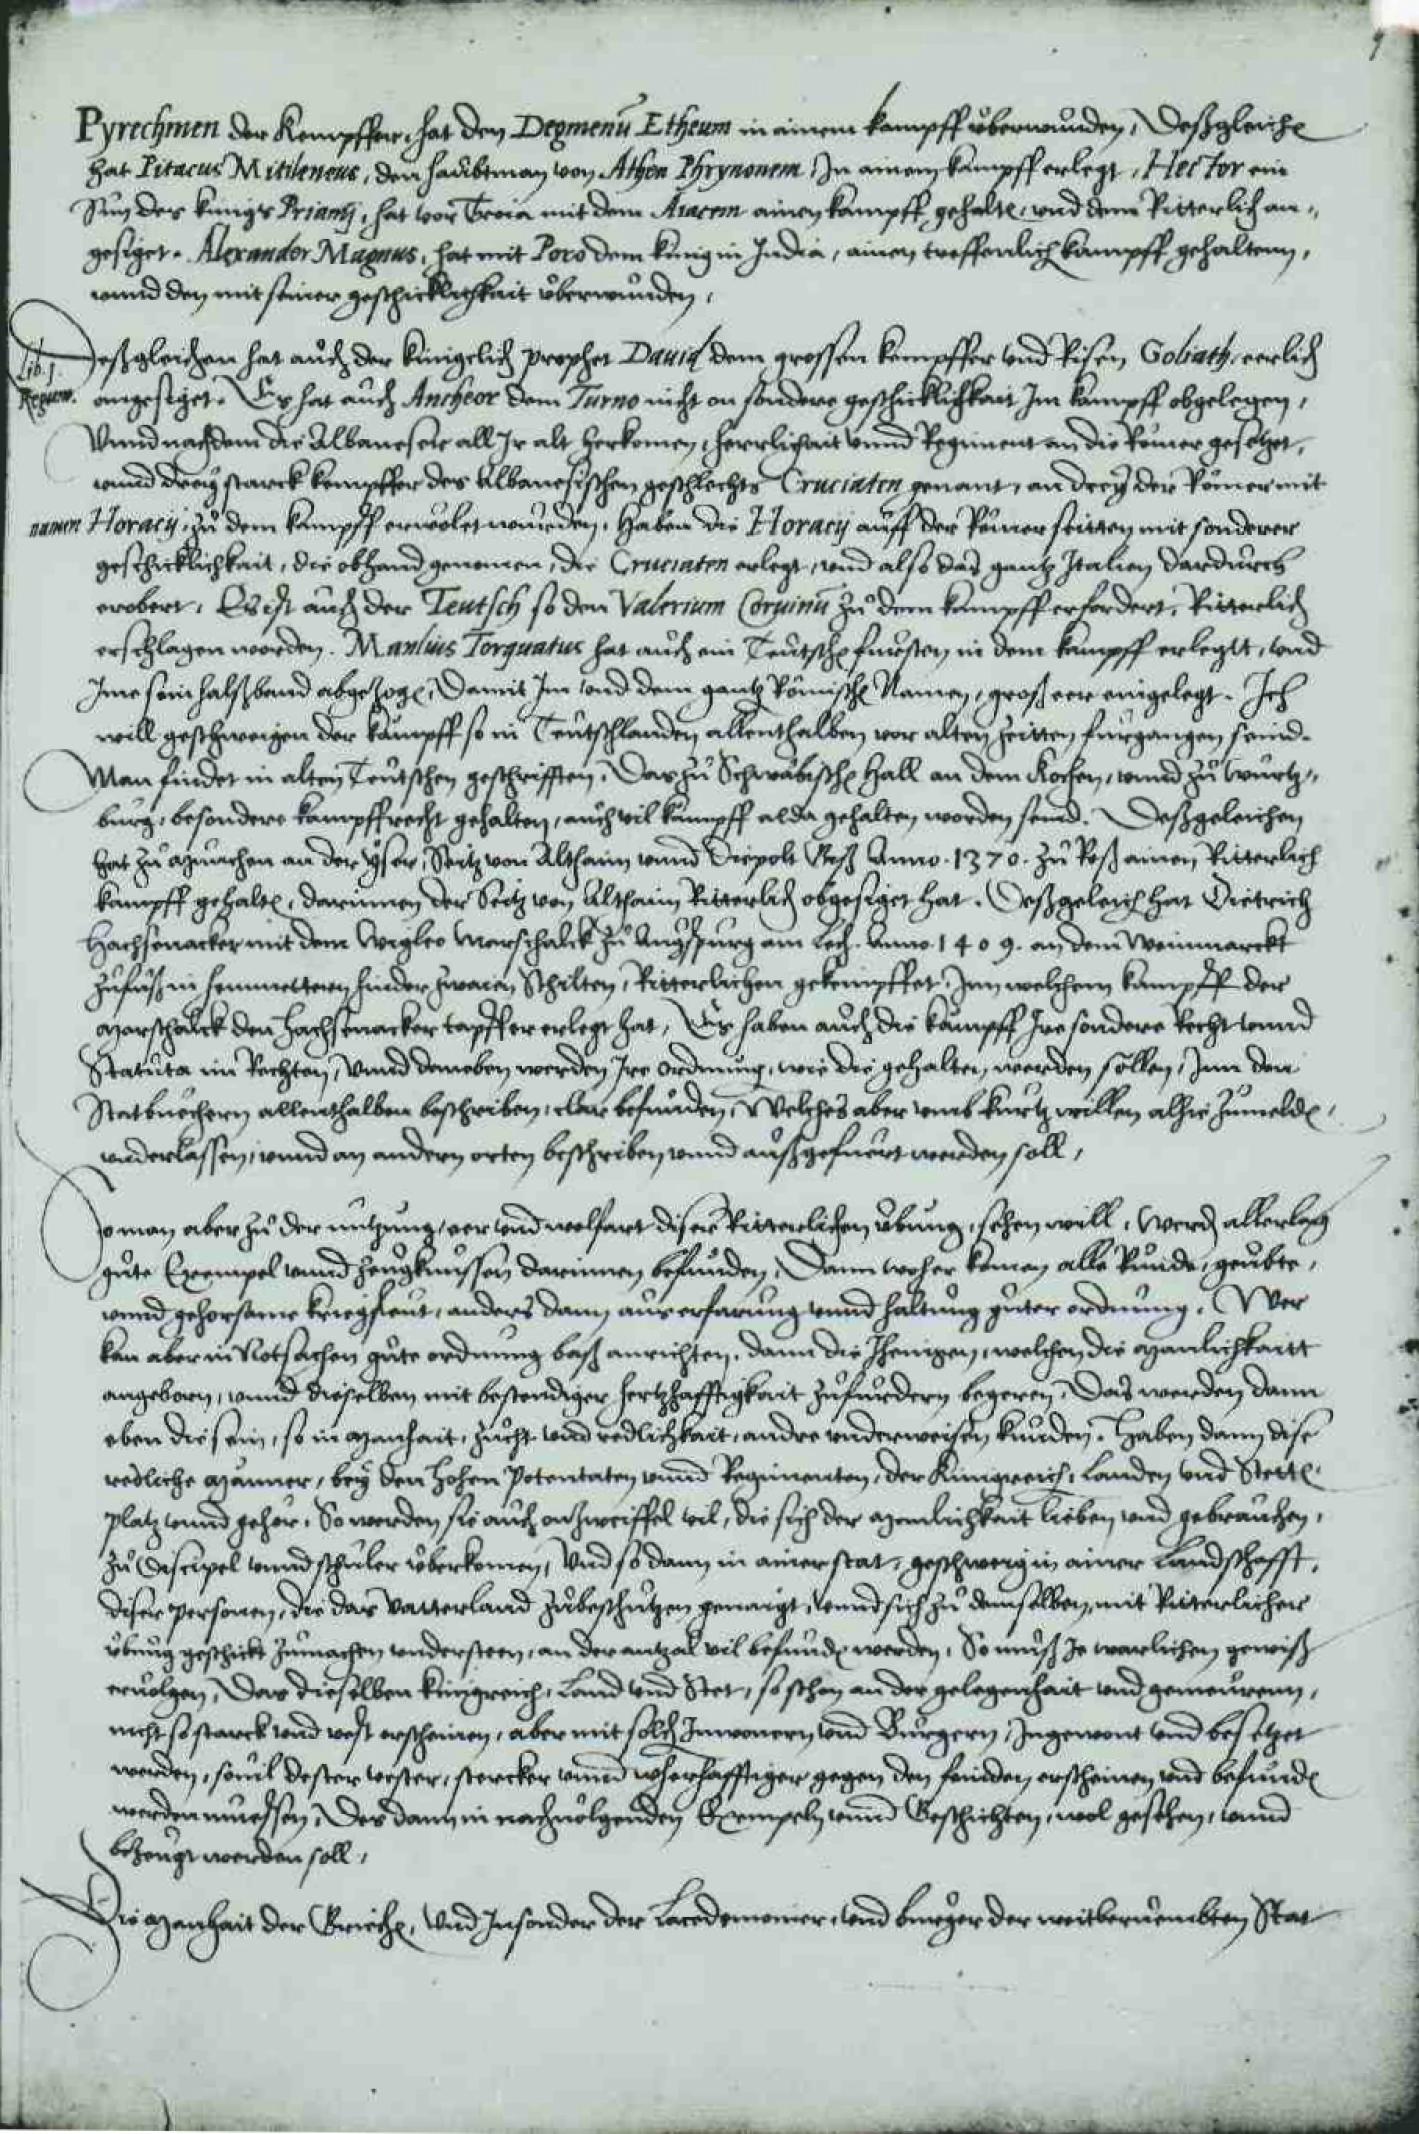 9
Pyrechmen der Kempffer, hat den Degmenū Etheum in ainem kampff überwunden, Deßgleichē
hat Pitacus Mitileneus, den haubtman von Athen Phrynonem, In ainem kampff erlegt, Hector ein
Sun des kunigs Priamj, hat vor Troia mit dem Aiacem ainen kampff gehaltē, vnd dem Ritterlich an=
gesiget. Alexander Magnus, hat mit Poro dem kunig in India, ainen treffenlich kampff gehaltenn,
vnnd den mit seiner geschicklichkait überwunden,
Deßgleichen hat auch der künigclich prophet Dauid dem grossen kempffer vnd Risen Goliath, eerlich
Lib. j.
Regum.
angesiget. Es hat auch Ancheor dem Turno nicht on sondere geschicklichkait Im kampff obgelegen,
Vnnd nachdem die Albaneser all Ir alt herkomen, herrlichait vnnd Regiment an die Römer gesetzet,
vnnd dreÿ starck kempffer des Albanesischen geschlechts Cruciaten genant, an dreÿ der Römer mit
namen Horacij, zu dem kampff erwölet wurden, Haben die Horacij auff der Römer seitten mit sonderer
geschicklichkait, die obhand genomen, die Cruciaten erlegt, vnd also das gantz Italien dardurch
erobert. Es ist auch der Teutsch so den Valerium Coruinū zu dem kampff erfordert, Ritterlich
erschlagen worden. Manlius Torquatus hat auch ein Teutschē fursten in dem kampff erlegtt, vnd
Ime sein halßband abgezogē, Damit Im vnd dem gantz Römischē Namen, groß eer eingelegt. Ich
will geschweigen der kämpff so in Teutschlanden allenthalben vor alten zeitten fürgangen seind.
Man findet in alten Teutschen geschrifften, Das zu Schwäbischē Hall an dem Kochen, vnnd zu Würtz=
burg, besondere kampffrecht gehalten, auch vil kämpff alda gehalten worden seind. Deßgeleichen
hat zu München an der Yser, Seitz von Althaim vnnd Diepolt Geß Anno. 1370. zu Roß ainen Ritterlich
kampff gehaltē, darinnen der Seitz von Althaim Ritterlich obgesiget hat. Deßgeleich hat Dietrich
Hachsenacker mit dem Wigleo Marschalck zu Augspurg am Lech. Anno. 1409. an dem Weinmarckt
zufuß in hemmettern hinder zwaien Schilten, Ritterlichen gekempffet, Inn welchem kampff der
Marschalck den Hachsenacker tapffer erlegt hat, Es haben auch die kämpff Ire sondere Recht vnnd
Statuta im Rechten, Vnnd darneben werden Ire ordnung, wie die gehalten werden sollen, Inn den
Statbüechern allenthalben beschriben, clar befunden, Welches aber vmb kürtz willen alhie zumeldē,
vnderlassen, vnnd an andern orten beschriben vnnd außgefuert werden soll,
So man aber zu der nutzung, eer vnd wolfart diser Ritterlichen übung, sehen will, Werdē allerlaÿ
gute Exempel vnnd zeugknussen darinnen befunden, Dann woher komen alle Runde, geübte,
vnnd gehorsame kriegsleut, anders dann aus erfarung vnnd haltung guter ordnung. Wer
kan aber in Notsachen gute ordnung baß anrichten, dann die Ihenigen, welchen die Manlichkaitt
angeborn, vnnd dieselben mit bestendiger hertzhafftigkait zufürdern begeren, Das werden dann
eben die sein, so in Manhait, zucht vnd redlichkait, andre vnderweisen kunden. Haben dann dise
redliche Männer, bey den Hohen Potentaten vnnd Regimenten, der Kunigreich, Landen vnd Stettē
platz vnnd gehör, So werden sie auch on zweiffel vil, die sich der Menlichkait lieben vnd gebrauchen,
zu Discipel vnnd schuler überkomen, Vnd so dann in ainer stat, geschweig in ainer Landschafft,
diser personen, die das Vatterland zubeschutzen genaigt, vnnd sich zu demselben, mit Ritterlicher
übung geschickt zumachen vndersteen, an der antzal vil befundē werden, So muß Je warlichen gewiß
eruolgen, Das dieselben kunigreich, Land vnd Stet, so schon an der gelegenhait vnd gemeurenn,
nicht so starck vnd vest erscheinen, aber mit solch Inwonern vnd Burgern, Ingewont vnd besetzet
werden, souil dester vester, stercker vnnd wherhafftiger gegen den feindten erscheinen vnd befundē
werden muessen, Des dann in nachuolgenden Exempeln vnnd Geschichten, wol gesehen, vnnd
bezeugt werden soll,
Die Manhait der Griechē, Vnd Insonder der Lacedemonier, vnd burger der weitberuembten Stat